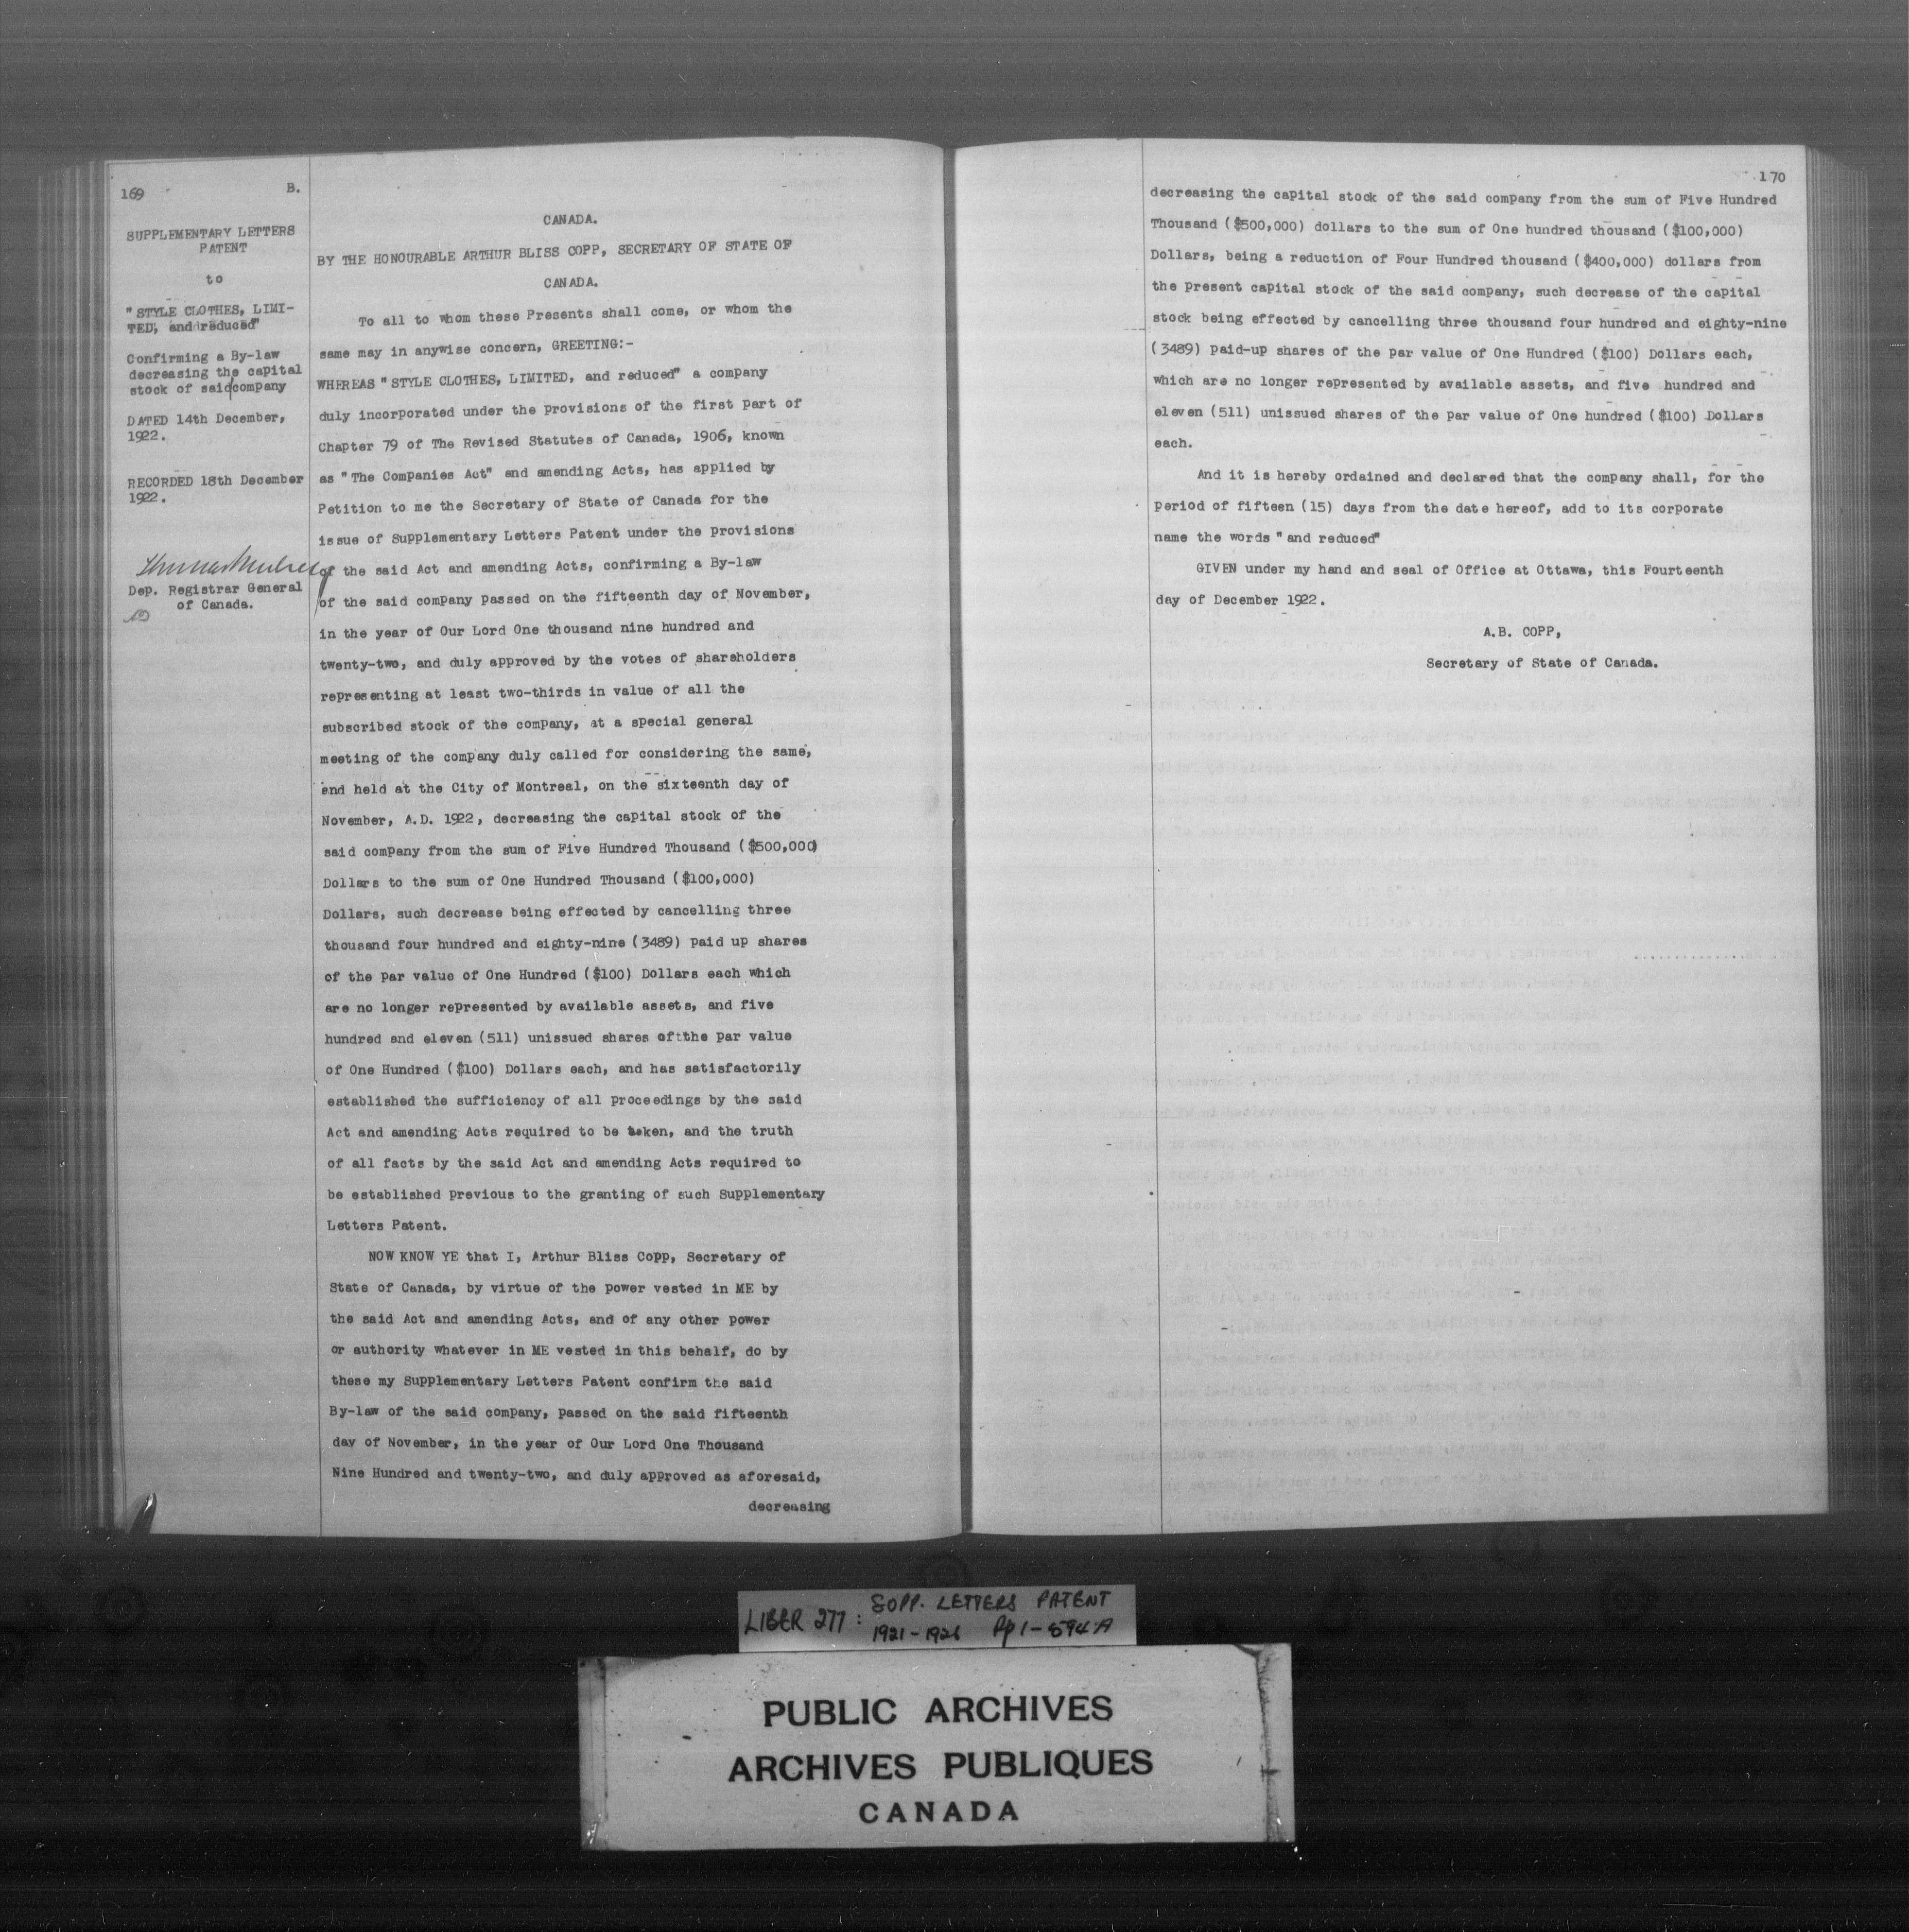 169 B.
SUPPLEMENTARY LETTERS
PATENT
to
"STYLE CLOTHES, LIMI-
TED, and reduced"
Confirming a By-law
decreasing the capital
stock of said company
DATED 14th December,
1922.
RECORDED 18th December
1922.
Dep. Registrar General
of Canada.
CANADA.
BY THE HONOURABLE ARTHUR BLISS COPP, SECRETARY OF STATE OF
CANADA.
To all to whom these Presents shall come, or whom the
same may in anywise concern, GREETING:-
WHEREAS "STYLE CLOTHES, LIMITED, and reduced" a company
duly incorporated under the provisions of the first part of
Chapter 79 of The Revised Statutes of Canada, 1906, known
as "The Companies Act" and amending Acts, has applied by
Petition to me the Secretary of State of Canada for the
issue of Supplementary Letters Patent under the provisions
of the said Act and amending Acts, confirming a By-law
of the said company passed on the fifteenth day of November,
in the year of Our Lord One thousand nine hundred and
twenty-two, and duly approved by the votes of shareholders
representing at least two-thirds in value of all the
subscribed stock of the company, at a special general
meeting of the company duly called for considering the same,
end held at the City of Montreal, on the sixteenth day of
November, A.D. 1922, decreasing the capital stock of the
said company from the sum of Five Hundred Thousand ($500,000)
Dollars to the sum of One Hundred Thousand ($100,000)
Dollars, such decrease being effected by cancelling three
thousand four hundred and eighty-nine (3489) paid up shares
of the par value of One Hundred ($100) Dollars each which
are no longer represented by available assets, and five
hundred and eleven (511) unissued shares oftthe par value
of One Hundred ($100) Dollars each, and has satisfactorily
established the sufficiency of all proceedings by the said
Act and amending Acts required to be taken, and the truth
of all facts by the said Act and amending Acts required to
be established previous to the granting of such Supplementary
Letters Patent.
NOW KNOW YE that I, Arthur Bliss Copp, Secretary of
State of Canada, by virtue of the power vested in ME by
the said Act and amending Acts, and of any other power
or authority whatever in ME vested in this behalf, do by
these my Supplementary Letters Patent confirm the said
By-law of the said company, passed on the said fifteenth
day of November, in the year of Our Lord One Thousand
Nine Hundred and twenty-two, and duly approved as aforesaid,
decreasing
170
decreasing the capital stock of the said company from the sum of Five Hundred
Thousand ($500,000) dollars to the sum of One hundred thousand ($100,000)
Dollars, being a reduction of Four Hundred thousand ($400,000) dollars from
the present capital stock of the said company, such decrease of the capital
stock being effected by cancelling three thousand four hundred and eighty-nine
(3489) paid-up shares of the par value of One Hundred ($100) Dollars each,
which are no longer represented by available assets, and five hundred and
eleven (511) unissued shares of the par value of One hundred ($100) Dollars
each.
And it is hereby ordained and declared that the company shall, for the
period of fifteen (15) days from the date hereof, add to its corporate
name the words "and reduced"
GIVEN under my hand and seal of Office at Ottawa, this Fourteenth
day of December 1922.
A.B. COPP,
Secretary of State of Canada.
LIBER 277: SUPP. LETTERS PATENT
1921-1926 Pp 1-594A
PUBLIC ARCHIVES
ARCHIVES PUBLIQUES
CANADA